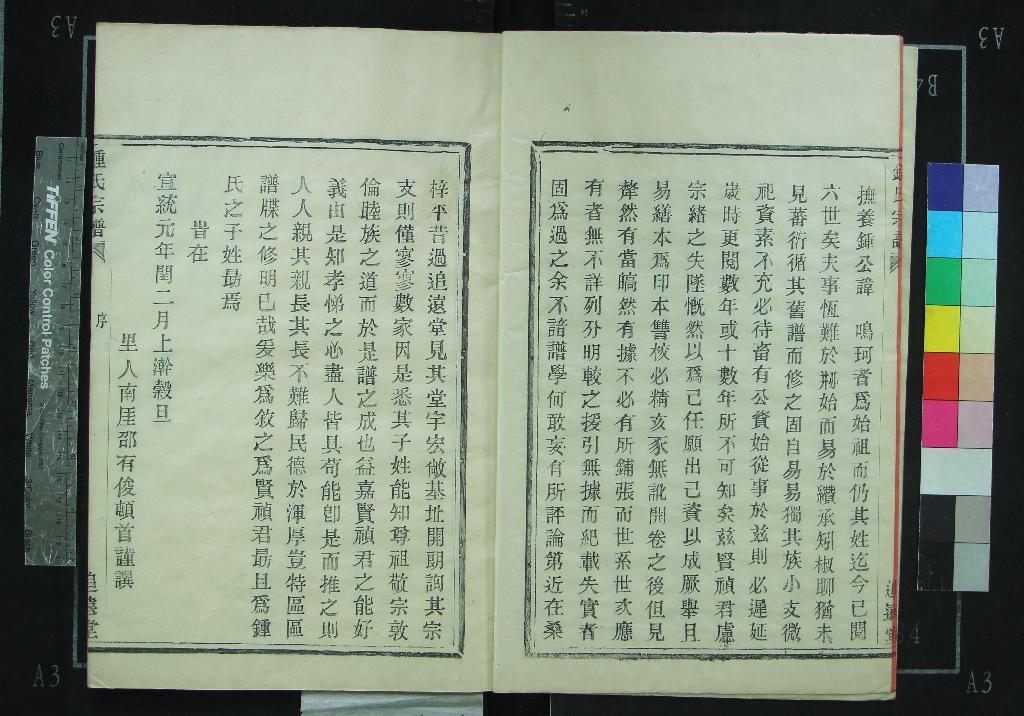 撫養鍾公諱　鳴珂者爲始祖而仍其姓迄今已閱
六世矣夫事恆難於刱始而易於纘承矧椒聊猶未
見蕃衍循其舊譜而修之固自易易獨其族小支微
祀資素不充必待畜有公貲始從事於兹則必遲延
歲時更閱數年或十數年所不可知矣兹賢禎君慮
宗緒之失墜慨然以爲己任願出己資以成厥舉且
易繕本爲印本讐校必精亥豕無訛開卷之後但見
犛然有當皜然有據不必有所鋪張而世系世次應
有者無不詳列分明較之援引無據而紀載失實者
固爲過之余不諳譜學何敢妄有所評論第近在桑
梓平昔過追遠堂見其堂宇宏敞基址開朗詢其宗
支則僅寥寥數家因是悉其子姓能知尊祖敬宗敦
倫睦族之道而於是譜之成也益嘉賢禎君之能好
義由是知孝悌之心盡人皆具苟能卽是而推之則
人人親其親長其長不難歸民德於渾厚豈特區區
譜牒之修明已哉爰樂爲敘之爲賢禎君勗且爲鍾
氏之子姓勗焉
旹在
宣統元年閏二月上澣穀旦
里人南厓邵有俊頓首謹譔
鍾氏宗譜
序
追遠堂
Tiffen Color Control Patches
A3
A3
A3
A3
B4